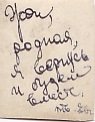 Жди,
родная,
я вернусь
и будем
вместе.